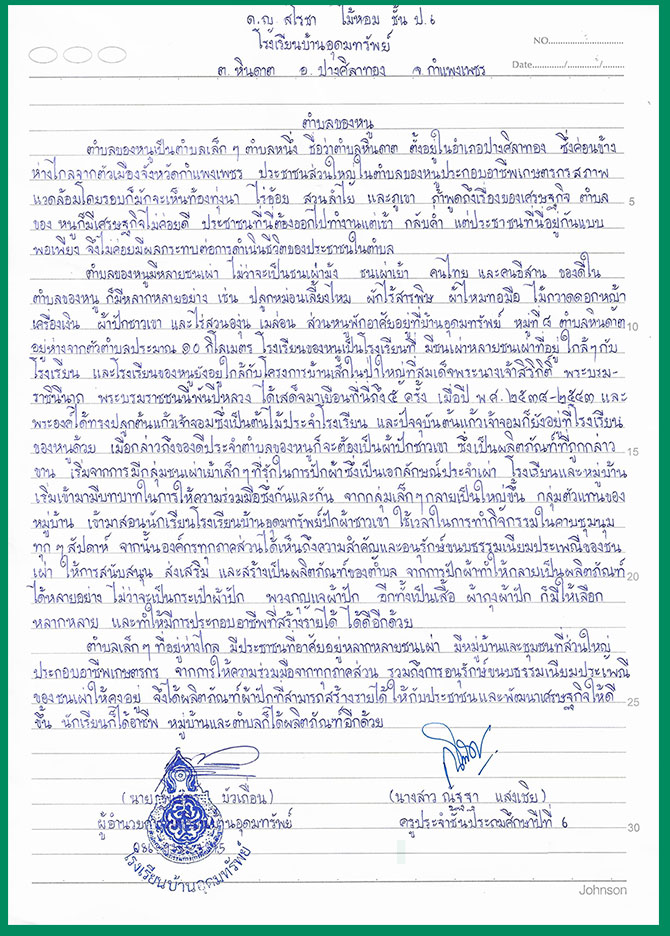 ด.ญ. สโรชา ไม้หอม ชั้น ป.๖
โรงเรียนบ้านอุดมทรัพย์
NO.
ต. หินดาต อ. ปางศิลาทอง จ. กำแพงเพชร
Date
ตำบลของหนู
ตำบลของหนูเป็นตำบลเล็กๆ ตำบลหนึ่ง ชื่อว่าตำบลหินดาต ตั้งอยู่ในอำเภอปางศิลาทอง ซึ่งค่อนข้าง
ห่างไกลจากตัวเมืองจังหวัดกำแพงเพชร ประชาชนส่วนใหญ่ในตำบลของหนูประกอบอาชีพเกษตรกรสภาพ
แวดล้อมโดยรอบก็มักจะเห็นท้องทุ่งนา ไร่อ้อย สวนลำไย และภูเขา ถ้าพูดถึงเรื่องของเศรษฐกิจ ตำบล
5
ของ หนูก็มีเศรษฐกิจไม่ค่อยดี ประชาชนที่นี่ต้องออกไปทำงานแต่เช้า กลับค่ำ แต่ประชาชนที่นี่อยู่กันแบบ
พอเพียง จึงไม่ค่อยมีผลกระทบต่อการดำเนินชีวิตของประชาชนในตำบล
ตำบลของหนูมีหลายชนเผ่า ไม่ว่าจะเป็นชนเผ่าม้ง ชนเผ่าเย้า คนไทย และคนอีสาน ของดีใน
ตำบลของหนู ก็มีหลากหลายอย่าง เช่น ปลูกหม่อนเลี้ยงไหม ผักไร้สารพิษ ผ้าไหมทอมือ ไม้กวาดดอกหญ้า
10
เครื่องเงิน ผ้าปักชาวเขา และไร่สวนองุ่น เมล่อน ส่วนหนูพักอาศัยอยู่ที่บ้านอุดมทรัพย์ หมู่ที่ ๘ ตำบลหินดาต
อยู่ห่างจากตัวตำบลประมาณ ๑๐ กิโลเมตร โรงเรียนของหนูเป็นโรงเรียนที่ มีชนเผ่าหลายชนเผ่าที่อยู่ ใกล้ๆกับ
โรงเรียน และโรงเรียนของหนูยังอยู่ใกล้กับโครงการบ้านเล็กในป่าใหญ่ที่สมเด็จพระนางเจ้าสิริกิติ์ พระบรม-
ราชินีนาถ พระบรมราชชนนีพันปีหลวง ได้เสด็จมาเยือนที่นี่ถึง ๕ ครั้ง เมื่อปี พ.ศ. ๒๕๓๘-๒๕๔๓ และ
พระองค์ได้ทรงปลูกต้นแก้วเจ้าจอมซึ่งเป็นต้นไม้ประจำโรงเรียน และปัจจุบันต้นแก้วเจ้าจอมก็ยังอยู่ที่โรงเรียน
ของหนูด้วย เมื่อกล่าวถึงของดีประจำตำบลของหนูก็จะต้องเป็นผ้าปักชาวเขา ซึ่งเป็นผลิตภัณฑ์ที่ถูกกล่าว
15
ขาน เริ่มจากการมีกลุ่มชนเผ่าเย้าเล็กๆที่รักในการปักผ้าซึ่งเป็นเอกลักษณ์ประจำเผ่า โรงเรียนและหมู่บ้าน
เริ่มเข้ามามีบทบาทในการให้ความร่วมมือซึ่งกันและกัน จากกลุ่มเล็กๆกลายเป็นใหญ่ขึ้น กลุ่มตัวแทนของ
หมู่บ้าน เข้ามาสอนนักเรียนโรงเรียนบ้านอุดมทรัพย์ปักผ้าชาวเขา ใช้เวลาในการทำกิจกรรมในคาบชุมนุม
ทุกๆ สัปดาห์ จากนั้นองค์กรทุกภาคส่วนได้เห็นถึงความสำคัญและอนุรักษ์ขนบธรรมเนียมประเพณีของชน
เผ่า ให้การสนับสนุน ส่งเสริม และสร้างเป็นผลิตภัณฑ์ของตำบล จากการปักผ้าทำให้กลายเป็นผลิตภัณฑ์
20
ได้หลายอย่าง ไม่ว่าจะเป็นกระเป๋าผ้าปัก พวงกุญแจผ้าปัก อีกทั้งเป็นเสื้อ ผ้าถุงผ้าปัก ก็มีให้เลือก
หลากหลาย และทำให้มีการประกอบอาชีพที่สร้างรายได้ ได้ดีอีกด้วย
ตำบลเล็กๆ ที่อยู่ห่างไกล มีประชาชนที่อาศัยอยู่หลากหลายชนเผ่า มีหมู่บ้านและชุมชนที่ส่วนใหญ่
ประกอบอาชีพเกษตรกร จากการให้ความร่วมมือจากทุกภาคส่วน รวมถึงการอนุรักษ์ขนบธรรมเนียมประเพณี
ของชนเผ่าให้คงอยู่ จึงได้ผลิตภัณฑ์ผ้าปักที่สามารถสร้างรายได้ ให้กับประชาชนและพัฒนาเศรษฐกิจให้ดี
25
ขึ้น นักเรียนก็ได้อาชีพ หมู่บ้านและตำบลก็ได้ผลิตภัณฑ์อีกด้วย
(นาย บัวเถื่อน)
(นางสาว ณัฐฐา แสงเชีย)
ครูประจำชั้นประถมศึกษาปีที่ 6
30
โรงเรียนบ้านอุดมทรัพย์
Johnson